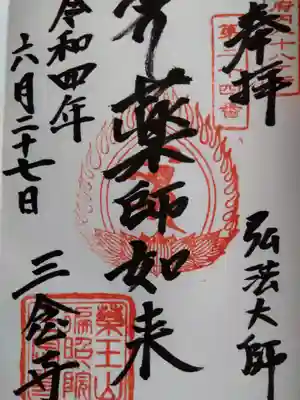 奉拝
弘法大師
第三十四番
薬師如来
令和四年
六月二十七日
三念寺
薬王山
遍昭院